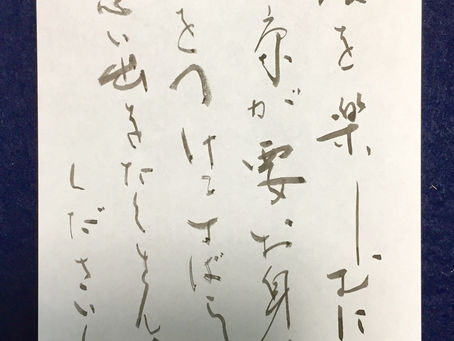 を楽しむに
康が要お身
をつけてすばら
思い出をたくさん
ください